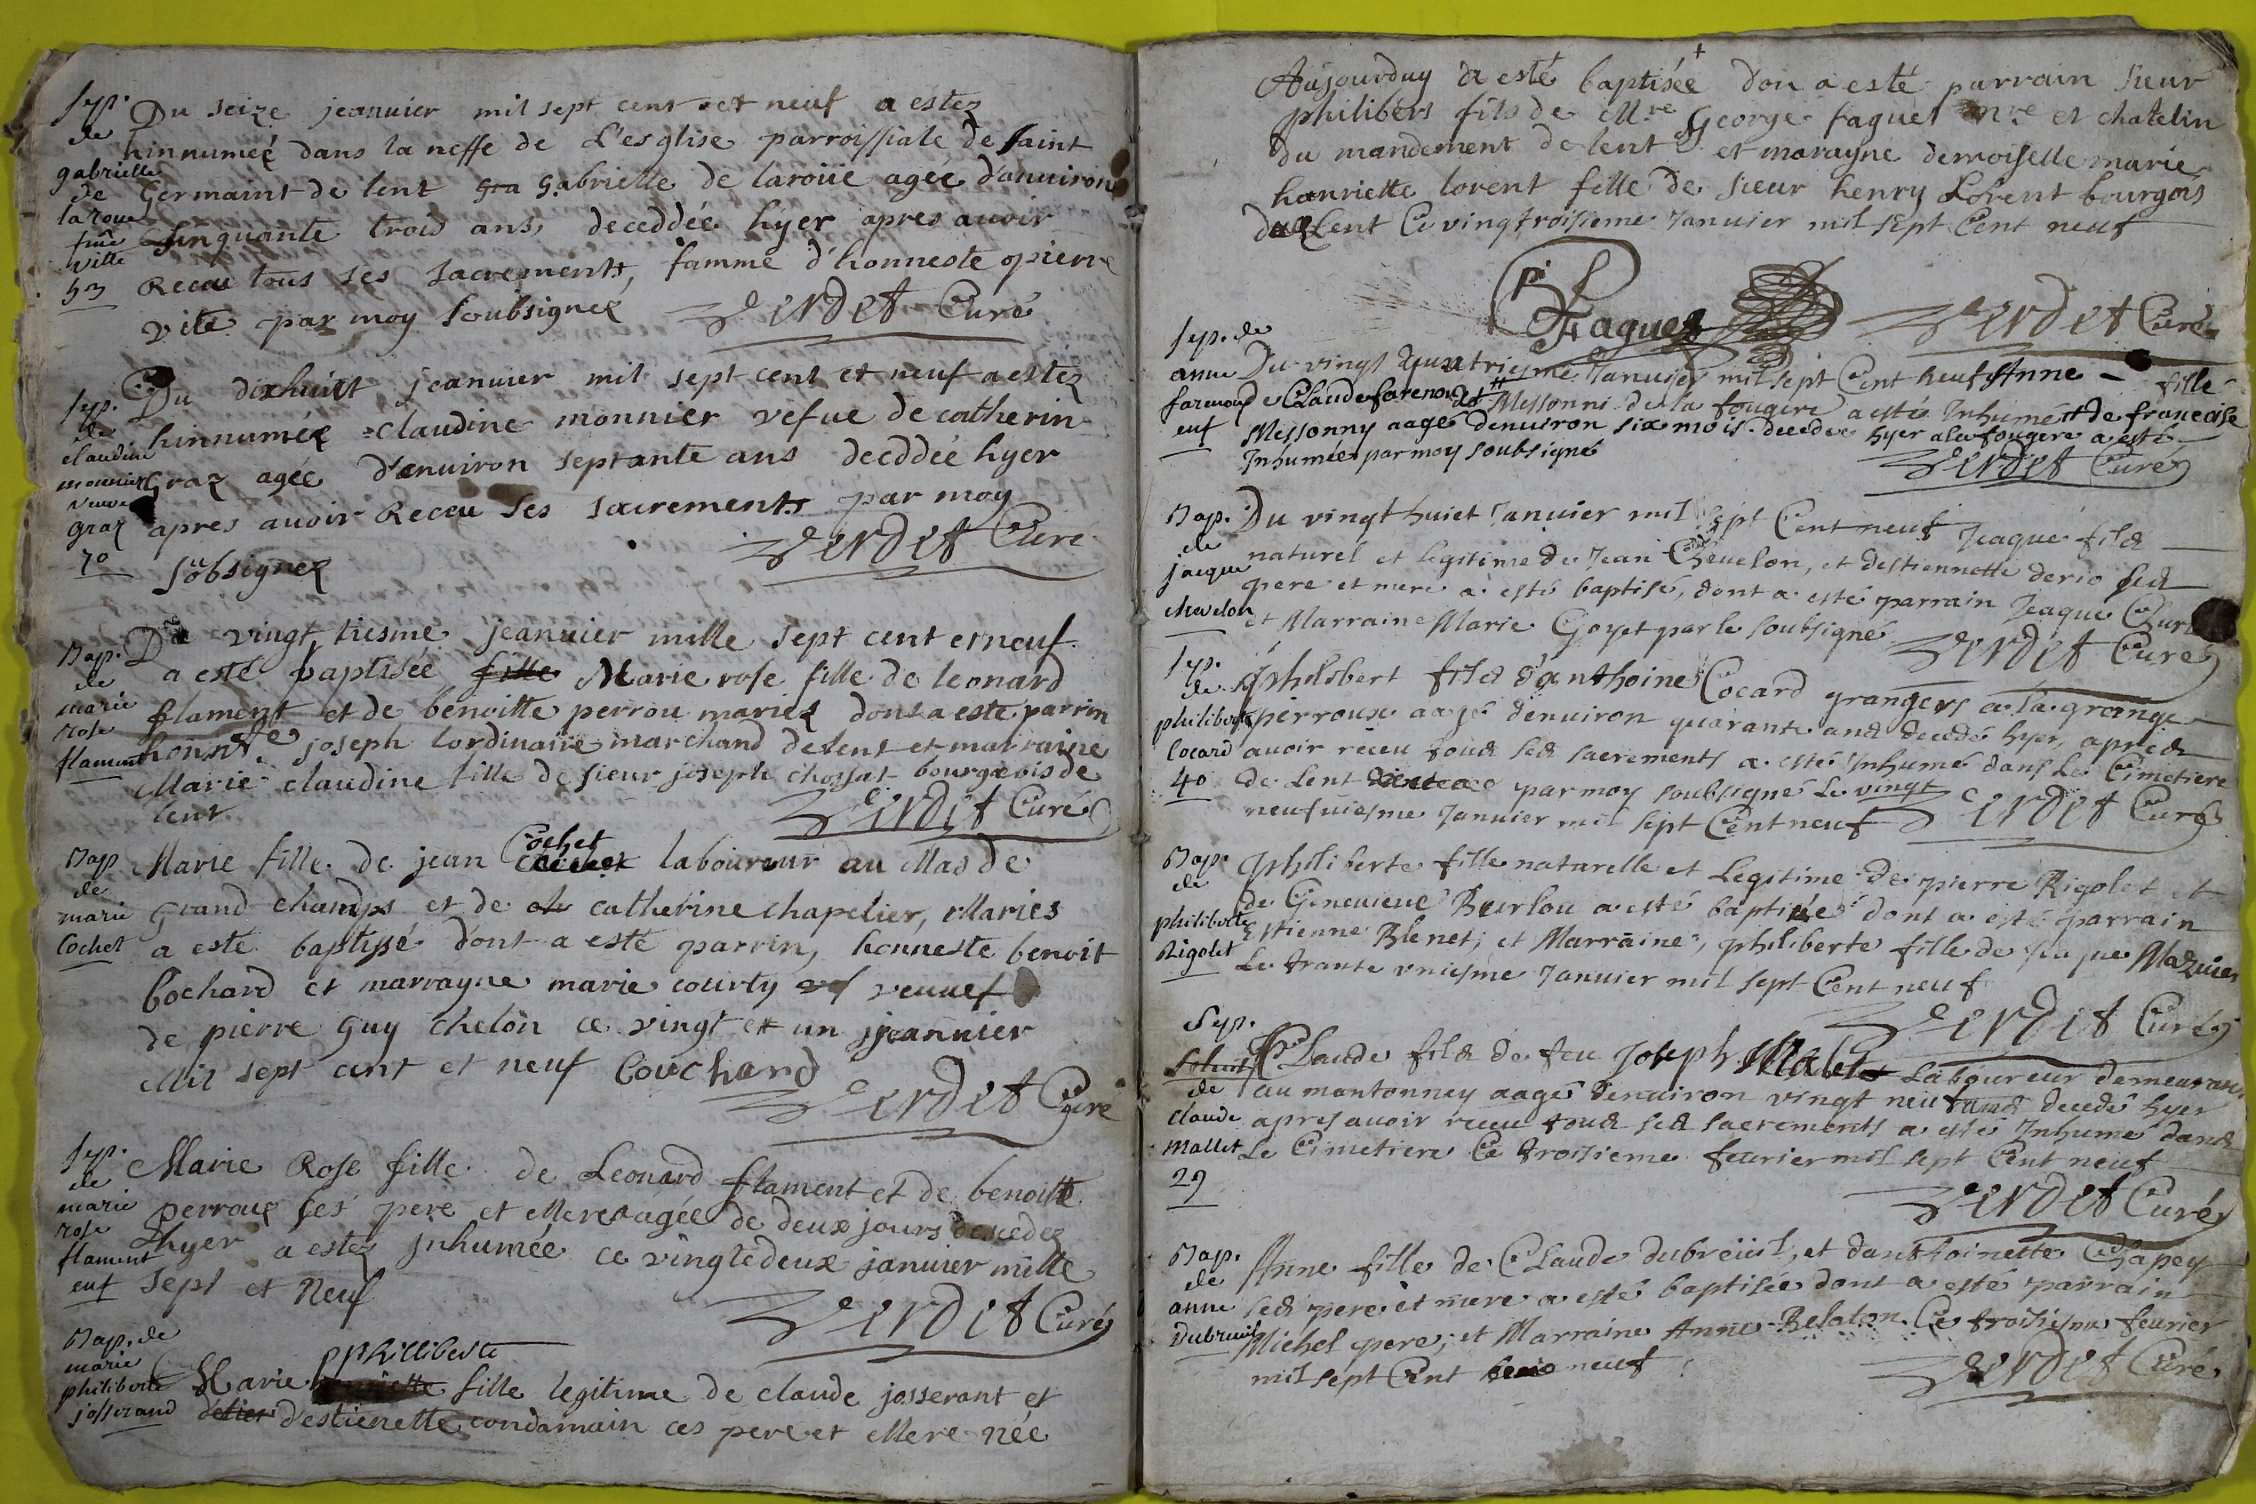 Sep.
de
gabrielle
de
la roue
fme
vitte
53
Du seize jeanuier mil sept cent et neuf a estez
hinnumeé dans la neffe de L'esglise parroissiale de saint
Germaint de lent gra gabrielle de laroüe agéé d'anuiron
sinquante trois ans, deceddéé hyer apres auoir
Receu tous ses sacrements, famme d'honneste pierre
vité par moy soubsigneé Verdet Curé
Sep.
de
claudine
monnier
veuve
graz
70
Du dixhuict jeanuier mil sept cent et neuf a estéz
hinnuméé claudine monnier vefue de catherin
Graz agéé d'enuiron septante ans deceddéé hyer
apres auoir Receu ses sacrements par moy
soubsignez Verdet Curé
Bap.
de
marie
rose
flament
Du vingt tiesme jeanuier mille sept cent et neuf
a esté baptisée fille Marie rose fille de leonard
flament et de benoitte perrou mariez dont a este parrin
honste joseph lordinaire marchand de lent et marraine
Marie claudine fille de sieur joseph chossat bourgeois de
lent Verdet Curé
Bap
de
marie
Cochet
Marie fille de jean Cochet laboureur au Mas de
grand champs et de ch catherine chapelier, Mariés
a esté baptissé dont a esté parrin, honneste benoit
Cochard et marrayne marie courty vef veuuef
de pierre guy chelon ce vingt et un jeannier
Mil sept cent et neuf Couchard
Verdet Curé
Sep.
de
marie
rose
flament
enf
Marie Rose fille de Leonard flament et de benoitte
perroux ses pere et Mere agée de deux jours decedez
hyer a estez Jnhumée ce vingtedeux januier mille
sept et Neuf
Verdet Curé
Bap. de
marie
philiberte
josserand
Marie Philliberte fille legitime de claude josserant et
detier d'estienette condamain ces pere et Mere née
Aujourduy a esté baptisée don a esté parrain sieur
philibers fils de Mre George faguet nre et chatelin
du mandement de lent et marayne demoiselle marie
hanriette lorent fille de sieur henry Lorent bourgois
de Lent Ce vingtroisieme Januier mil sept Cent neuf
P. Faguet Verdet Curé
Sep. de
anne
farenoud
enf
Du vingt quatriesme Januier mil sept Cent neuf Anne fille
de Claude farenoud et Messonni de la fougere a esté Inhumée de francoise
Messonny aagé denuiron six mois decedee hyer a la fougere a esté
Inhumée par moy soubsigné Verdet Curé
Bap.
de
jacque
chevelon
Du vingt huict Januier mil sept Cent neuf Jeaque fils
naturel et legitime de Jean Cheuelon, et destiennette derio ses
pere et mere a esté baptisé, dont a esté parrain Jeaque
et Marraine Marie Goyet par le soubsigné Verdet Curé
Sep.
de
philibert
Cocard
40
Philibert fils d'anthoine Cocard grangers a la grange
perrouse aagé denuiron quarante ans decedé hyer, apres
auoir receu tous ses sacrements a esté Inhumé dans Le Cimetiere
de Lent par moy soubsigné Le vingt
neufuiesme Januier mil sept Cent neuf Verdet Curé
Bap.
de
philiberte
Rigolet
Philiberte fille naturelle et Legitime de pierre Rigolet et
de Geneuieue Burlou a esté baptisée dont a esté parrain
Estienne Blenet; et Marraine, philiberte fille de Mazuier
Le trante vniesme Januier mil sept Cent neuf
Verdet Curé
Sep.
de
claude
mallet
29
Claude fils de feu Joseph Malet Laboureur demeurant
au montonney aagé denuiron vingt neuf ans decedé hyer
apres auoir receu tous ses sacrements a esté Inhumé dans
Le Cimetiere Ce troisieme feurier mil sept Cent neuf
Verdet Curé
Bap.
de
anne
Dubreüil
Anne fille de Claude dubreüil, et danthoinette Chapey
ses pere et mere a esté baptisée dont a esté parrain
Michel pere; et Marraine Anne Belaton Ce troisiesme feurier
mil sept Cent neuf
Verdet Curé